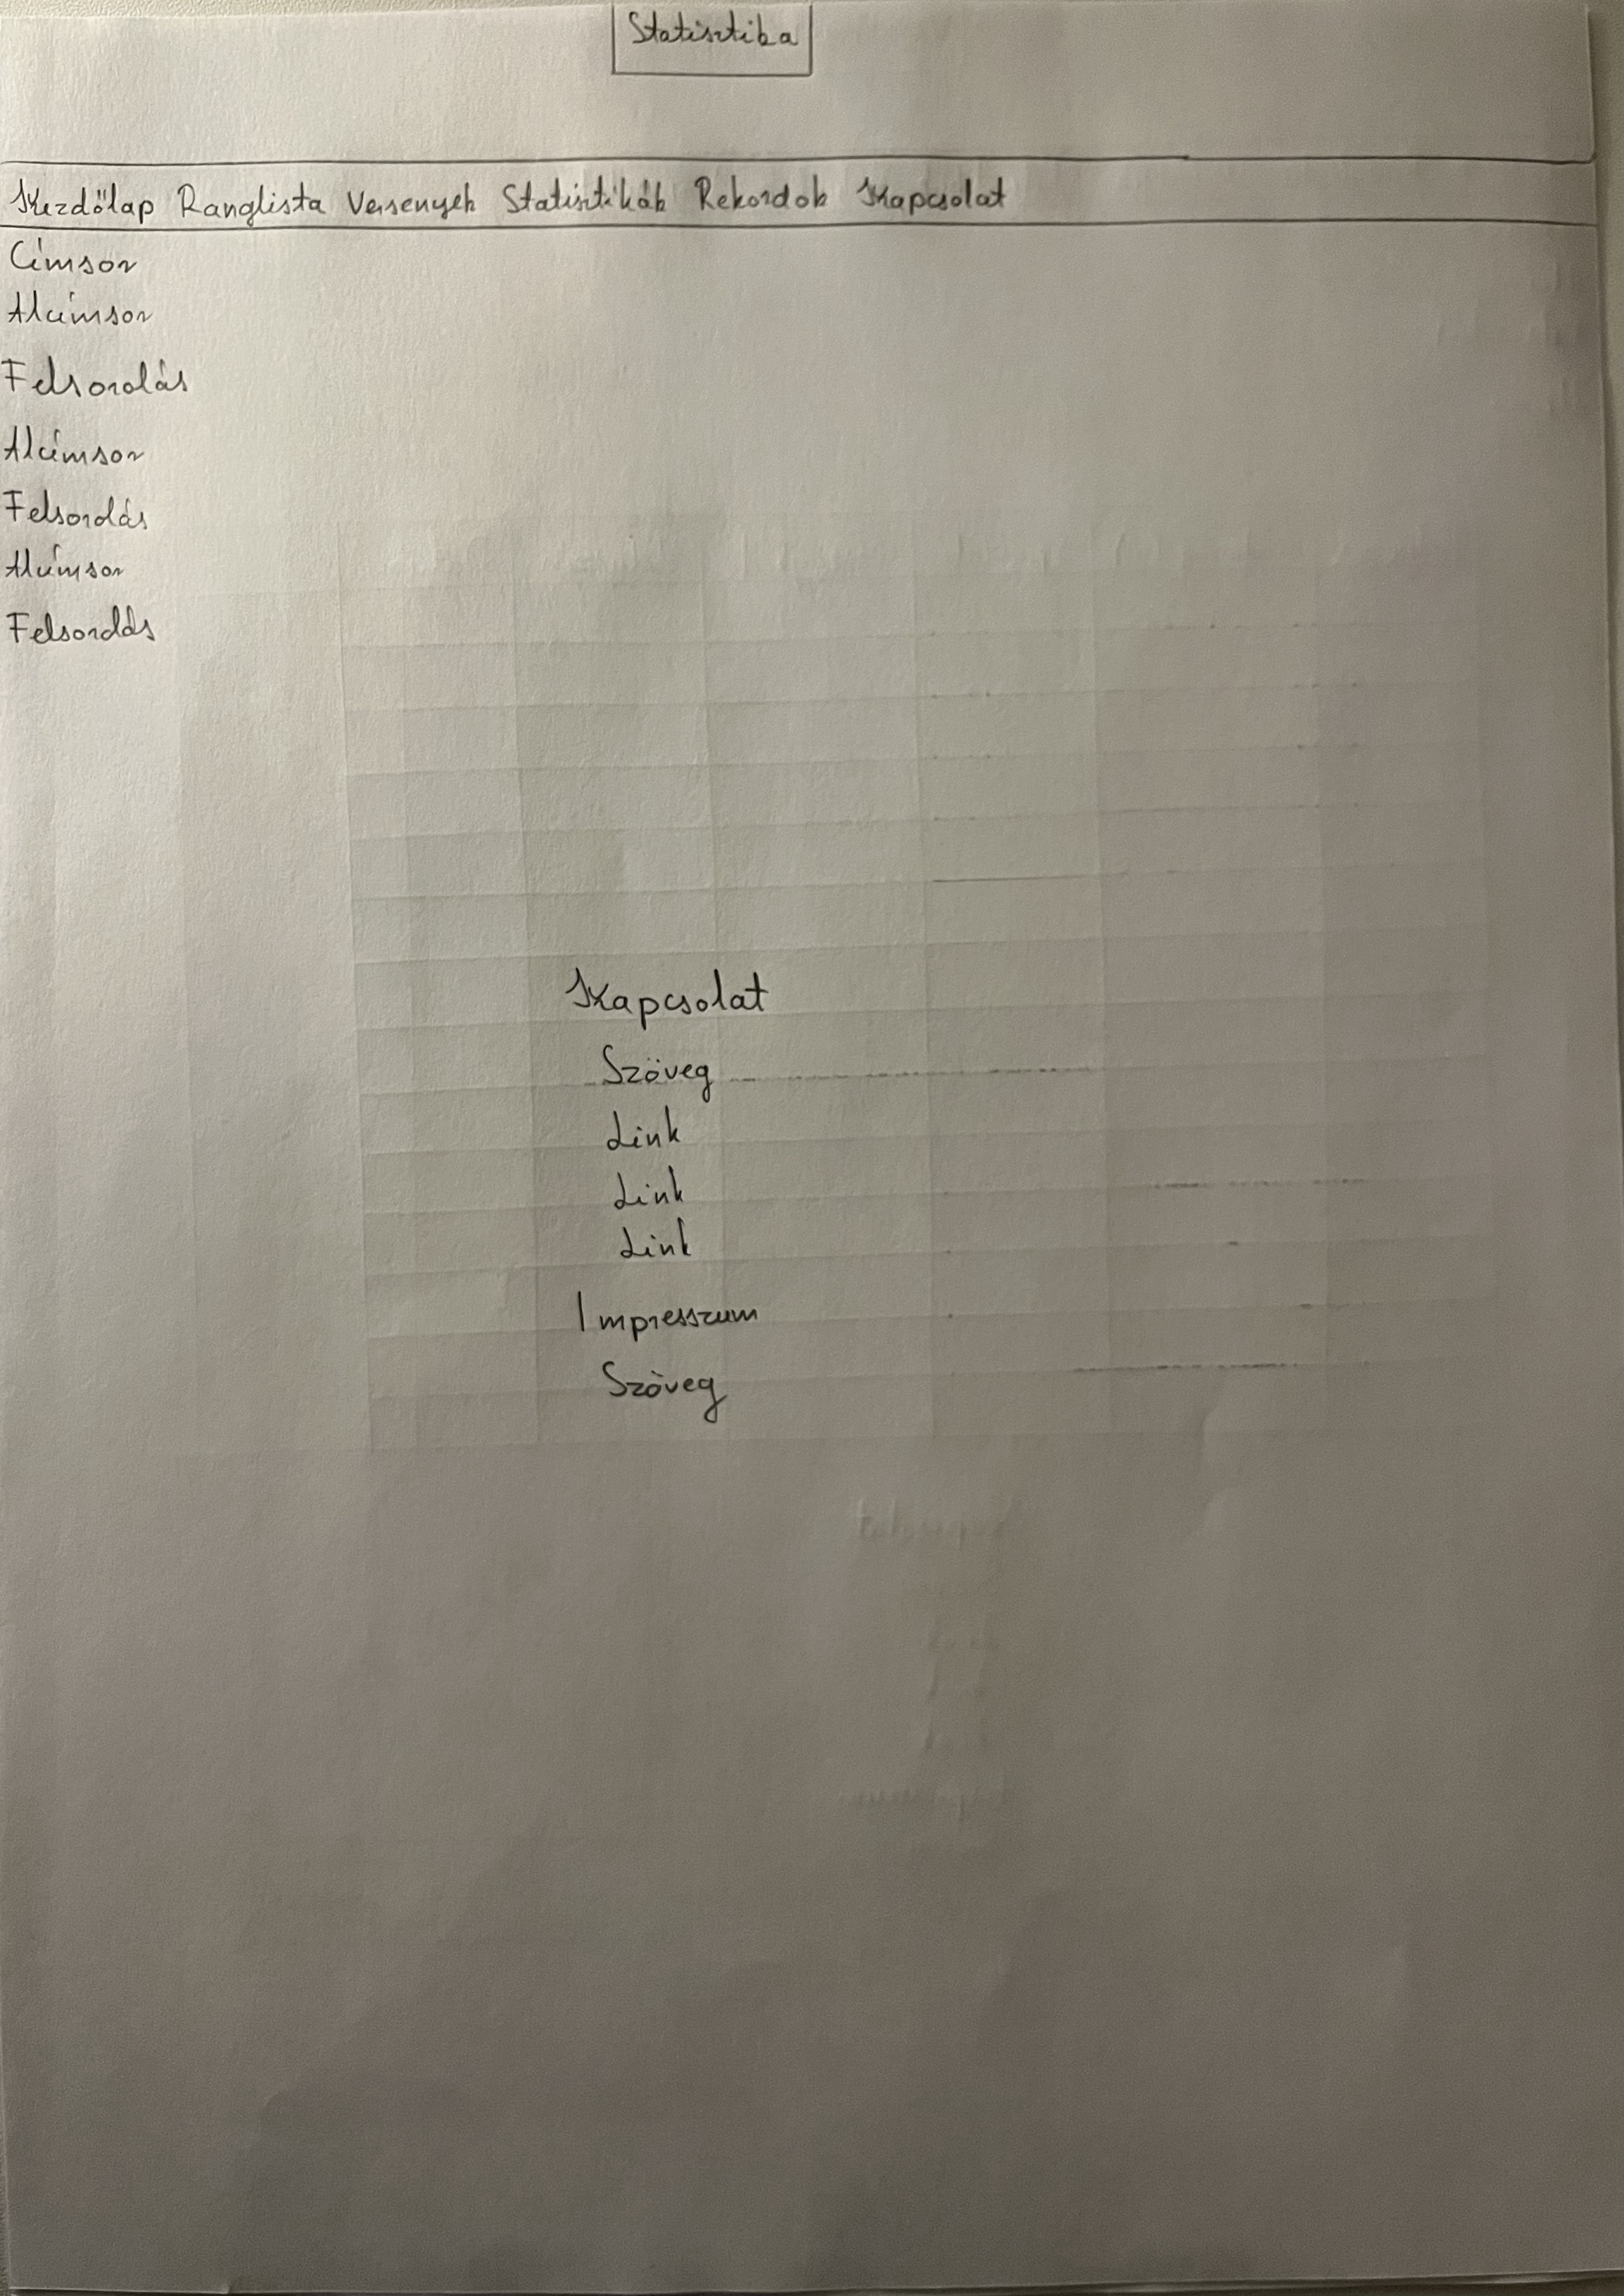 Statisztika
Kezdőlap Ranglista Versenyek Statisztikák Rekordok Kapcsolat
Címsor
Alcímsor
Felsorolás
Alcímsor
Felsorolás
Alcímsor
Felsorolás
Kapcsolat
Szöveg
Link
Link
Link
Impresszum
Szöveg